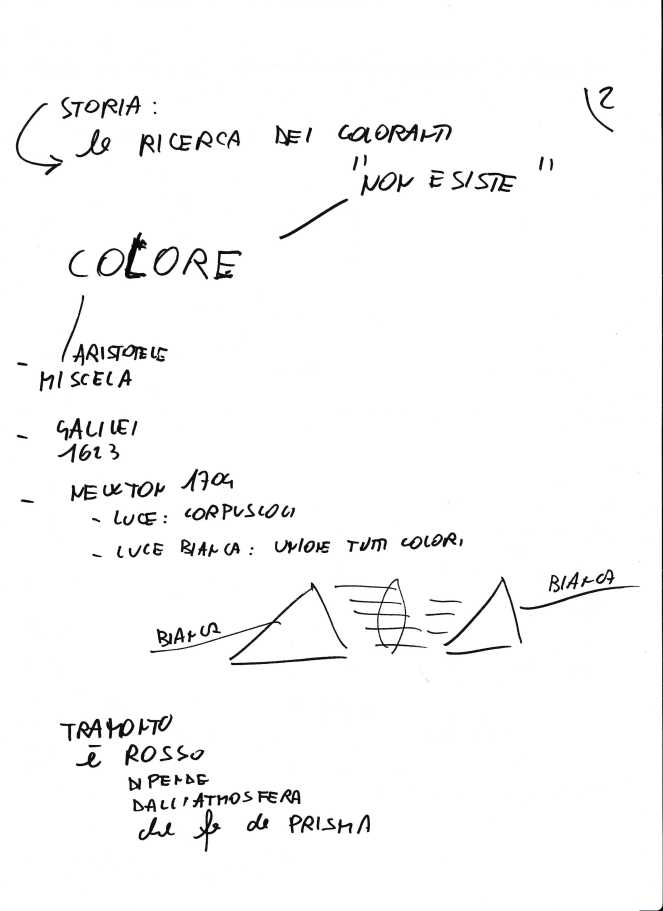 2
STORIA:
la RICERCA DEI COLORANTI
"NON ESISTE"
COLORE
- ARISTOTELE
MISCELA
- GALILEI
1623
- NEWTON 1704
- LUCE: CORPUSCOLI
- LUCE BIANCA: UNIONE TUTTI COLORI
BIANCA
BIANCA
TRAMONTO
è ROSSO
DIPENDE
DALL'ATMOSFERA
che fa da PRISMA